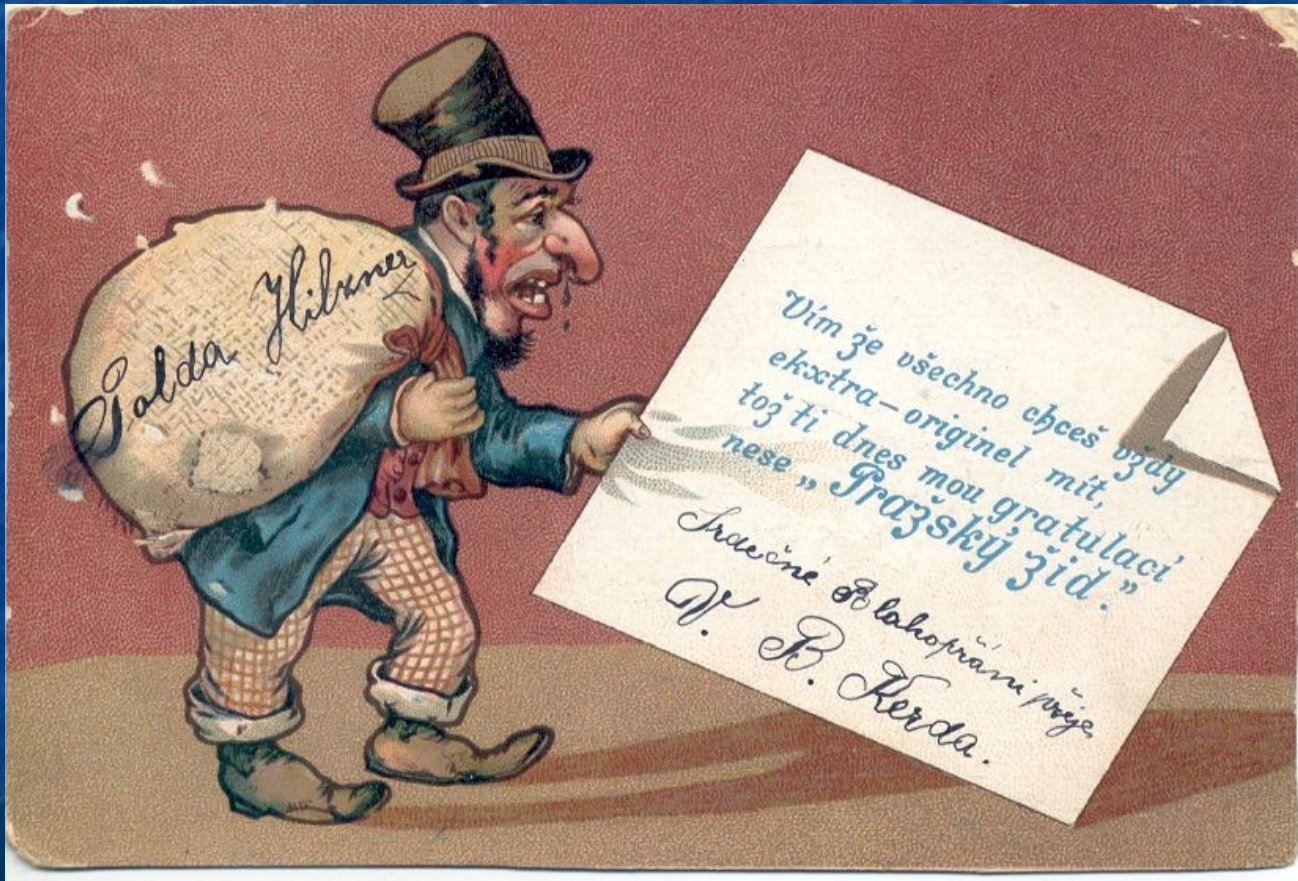 Polda Hilzner
Vím že všechno chceš vždy
ekxtra-originel mít,
tož ti dnes mou gratulací
nese „Pražský žid.”
Srdečné Blahopřání přeje
V. B. Kerda.